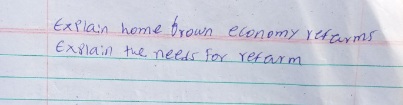 Explain home brown economy reforms
Explain the needs for reform